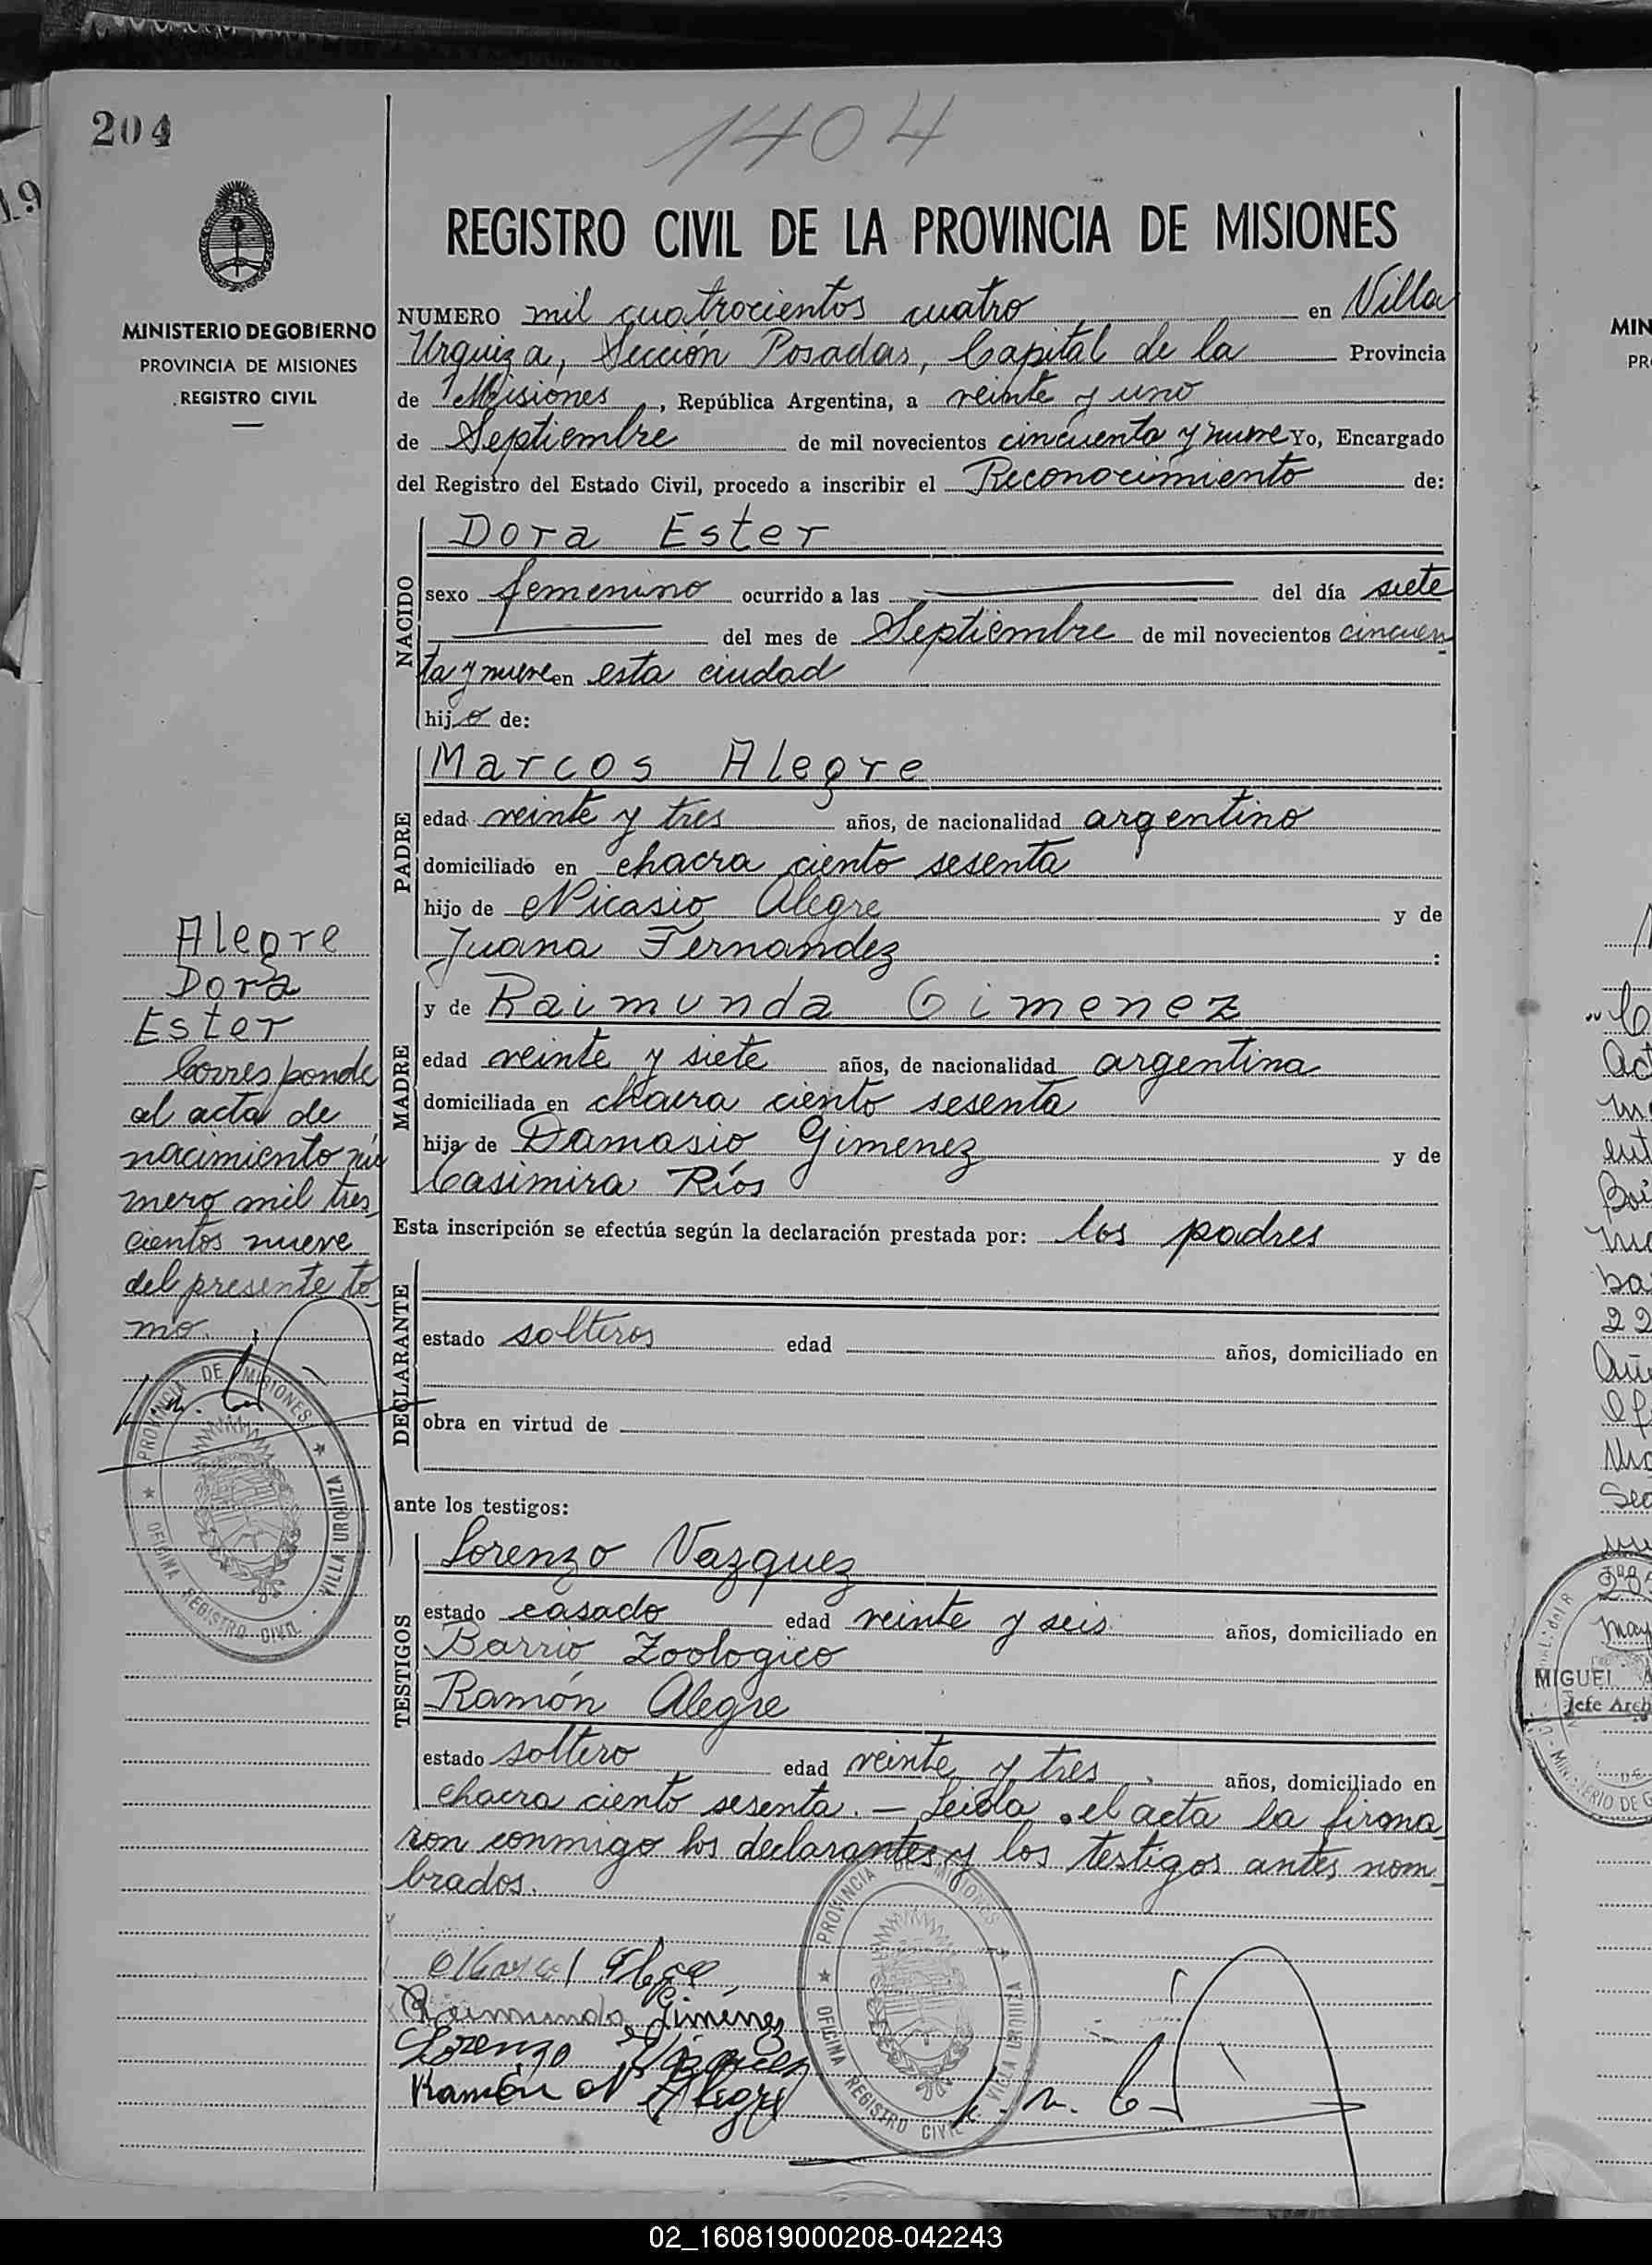 204
1404
19
REGISTRO CIVIL DE LA PROVINCIA DE MISIONES
MINISTERIO DE GOBIERNO
PROVINCIA DE MISIONES
REGISTRO CIVIL
NUMERO mil cuatrocientos cuatro en Villa
Urquiza, Sección Posadas, Capital de la Provincia
de Misiones, República Argentina, a veinte y uno
de Septiembre de mil novecientos cincuenta y nueve Yo, Encargado
del Registro del Estado Civil, procedo a inscribir el Reconocimiento de:
NACIDO
Dora Ester
sexo femenino ocurrido a las del día siete
del mes de Septiembre de mil novecientos cincuen
ta y nueve en esta ciudad
hijo de:
PADRE
Marcos Alegre
edad veinte y tres años, de nacionalidad argentino
domiciliado en chacra ciento sesenta
hijo de Nicasio Alegre y de
Juana Fernandez :
MADRE
y de Raimunda Gimenez
edad veinte y siete años, de nacionalidad argentina
domiciliada en chacra ciento sesenta
hija de Damasio Gimenez y de
Casimira Ríos
Esta inscripción se efectúa según la declaración prestada por: los padres
DECLARANTE
estado solteros edad años, domiciliado en
obra en virtud de
ante los testigos:
TESTIGOS
Lorenzo Vazquez
estado casado edad veinte y seis años, domiciliado en
Barrio Zoologico
Ramón Alegre
estado soltero edad veinte y tres años, domiciliado en
chacra ciento sesenta. – Leida el acta la firma
ron conmigo los declarantes y los testigos antes nom
brados.
Alegre
Dora
Ester
Corresponde
al acta de
nacimiento nú
mero mil tres
cientos nueve
del presente to
mo.
PROVINCIA DE MISIONES
OFICINA REGISTRO CIVIL
VILLA URQUIZA
Raimunda Giménez
Lorenzo Vazquez
Ramón Alegre
PROVINCIA DE MISIONES
OFICINA REGISTRO CIVIL
VILLA URQUIZA
MIN
PR
MIGUEL
Jefe Arch
02_160819000208-042243